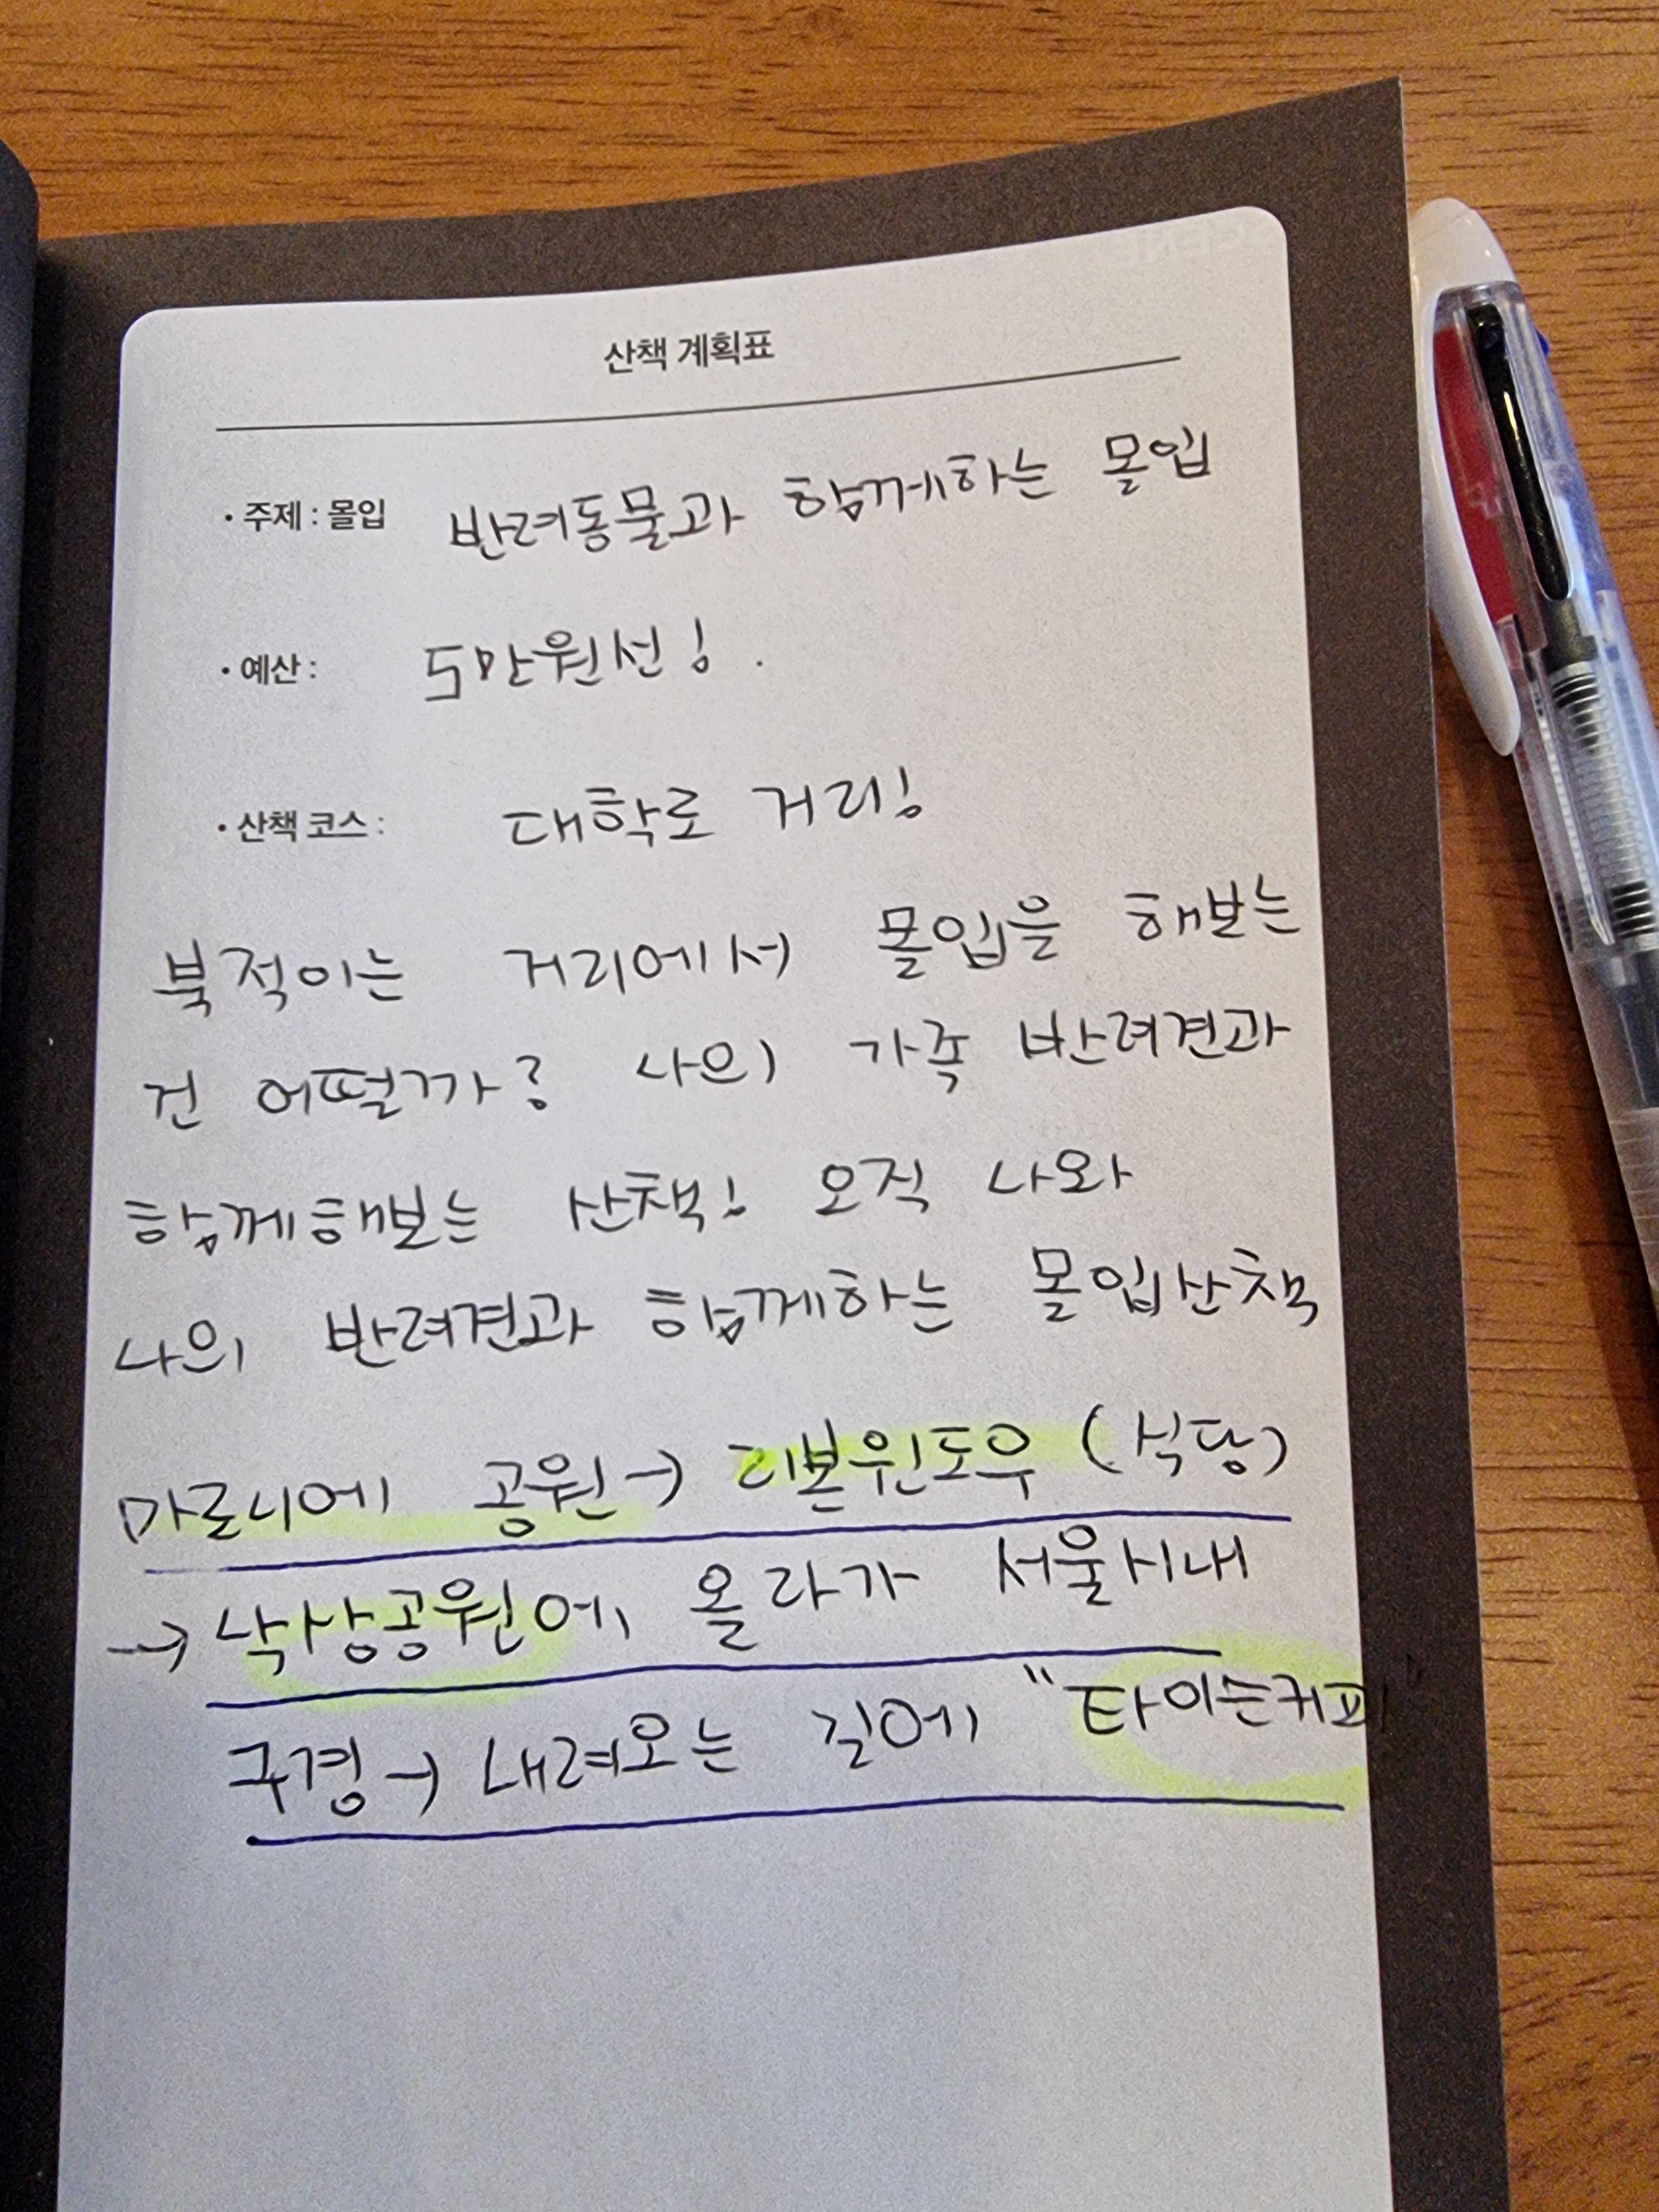 산책 계획표
• 주제 : 몰입 반려동물과 함께하는 몰입
• 예산 : 5만원선!
• 산책 코스 : 대학로 거리!
북적이는 거리에서 몰입을 해보는
건 어떨까? 나의 가족 반려견과
함께해보는 산책! 오직 나와
나의 반려견과 함께하는 몰입산책
마로니에 공원 → 리본윈도우 (식당)
→ 낙상공원에 올라가 서울시내
구경 → 내려오는 길에 "타이는커피"